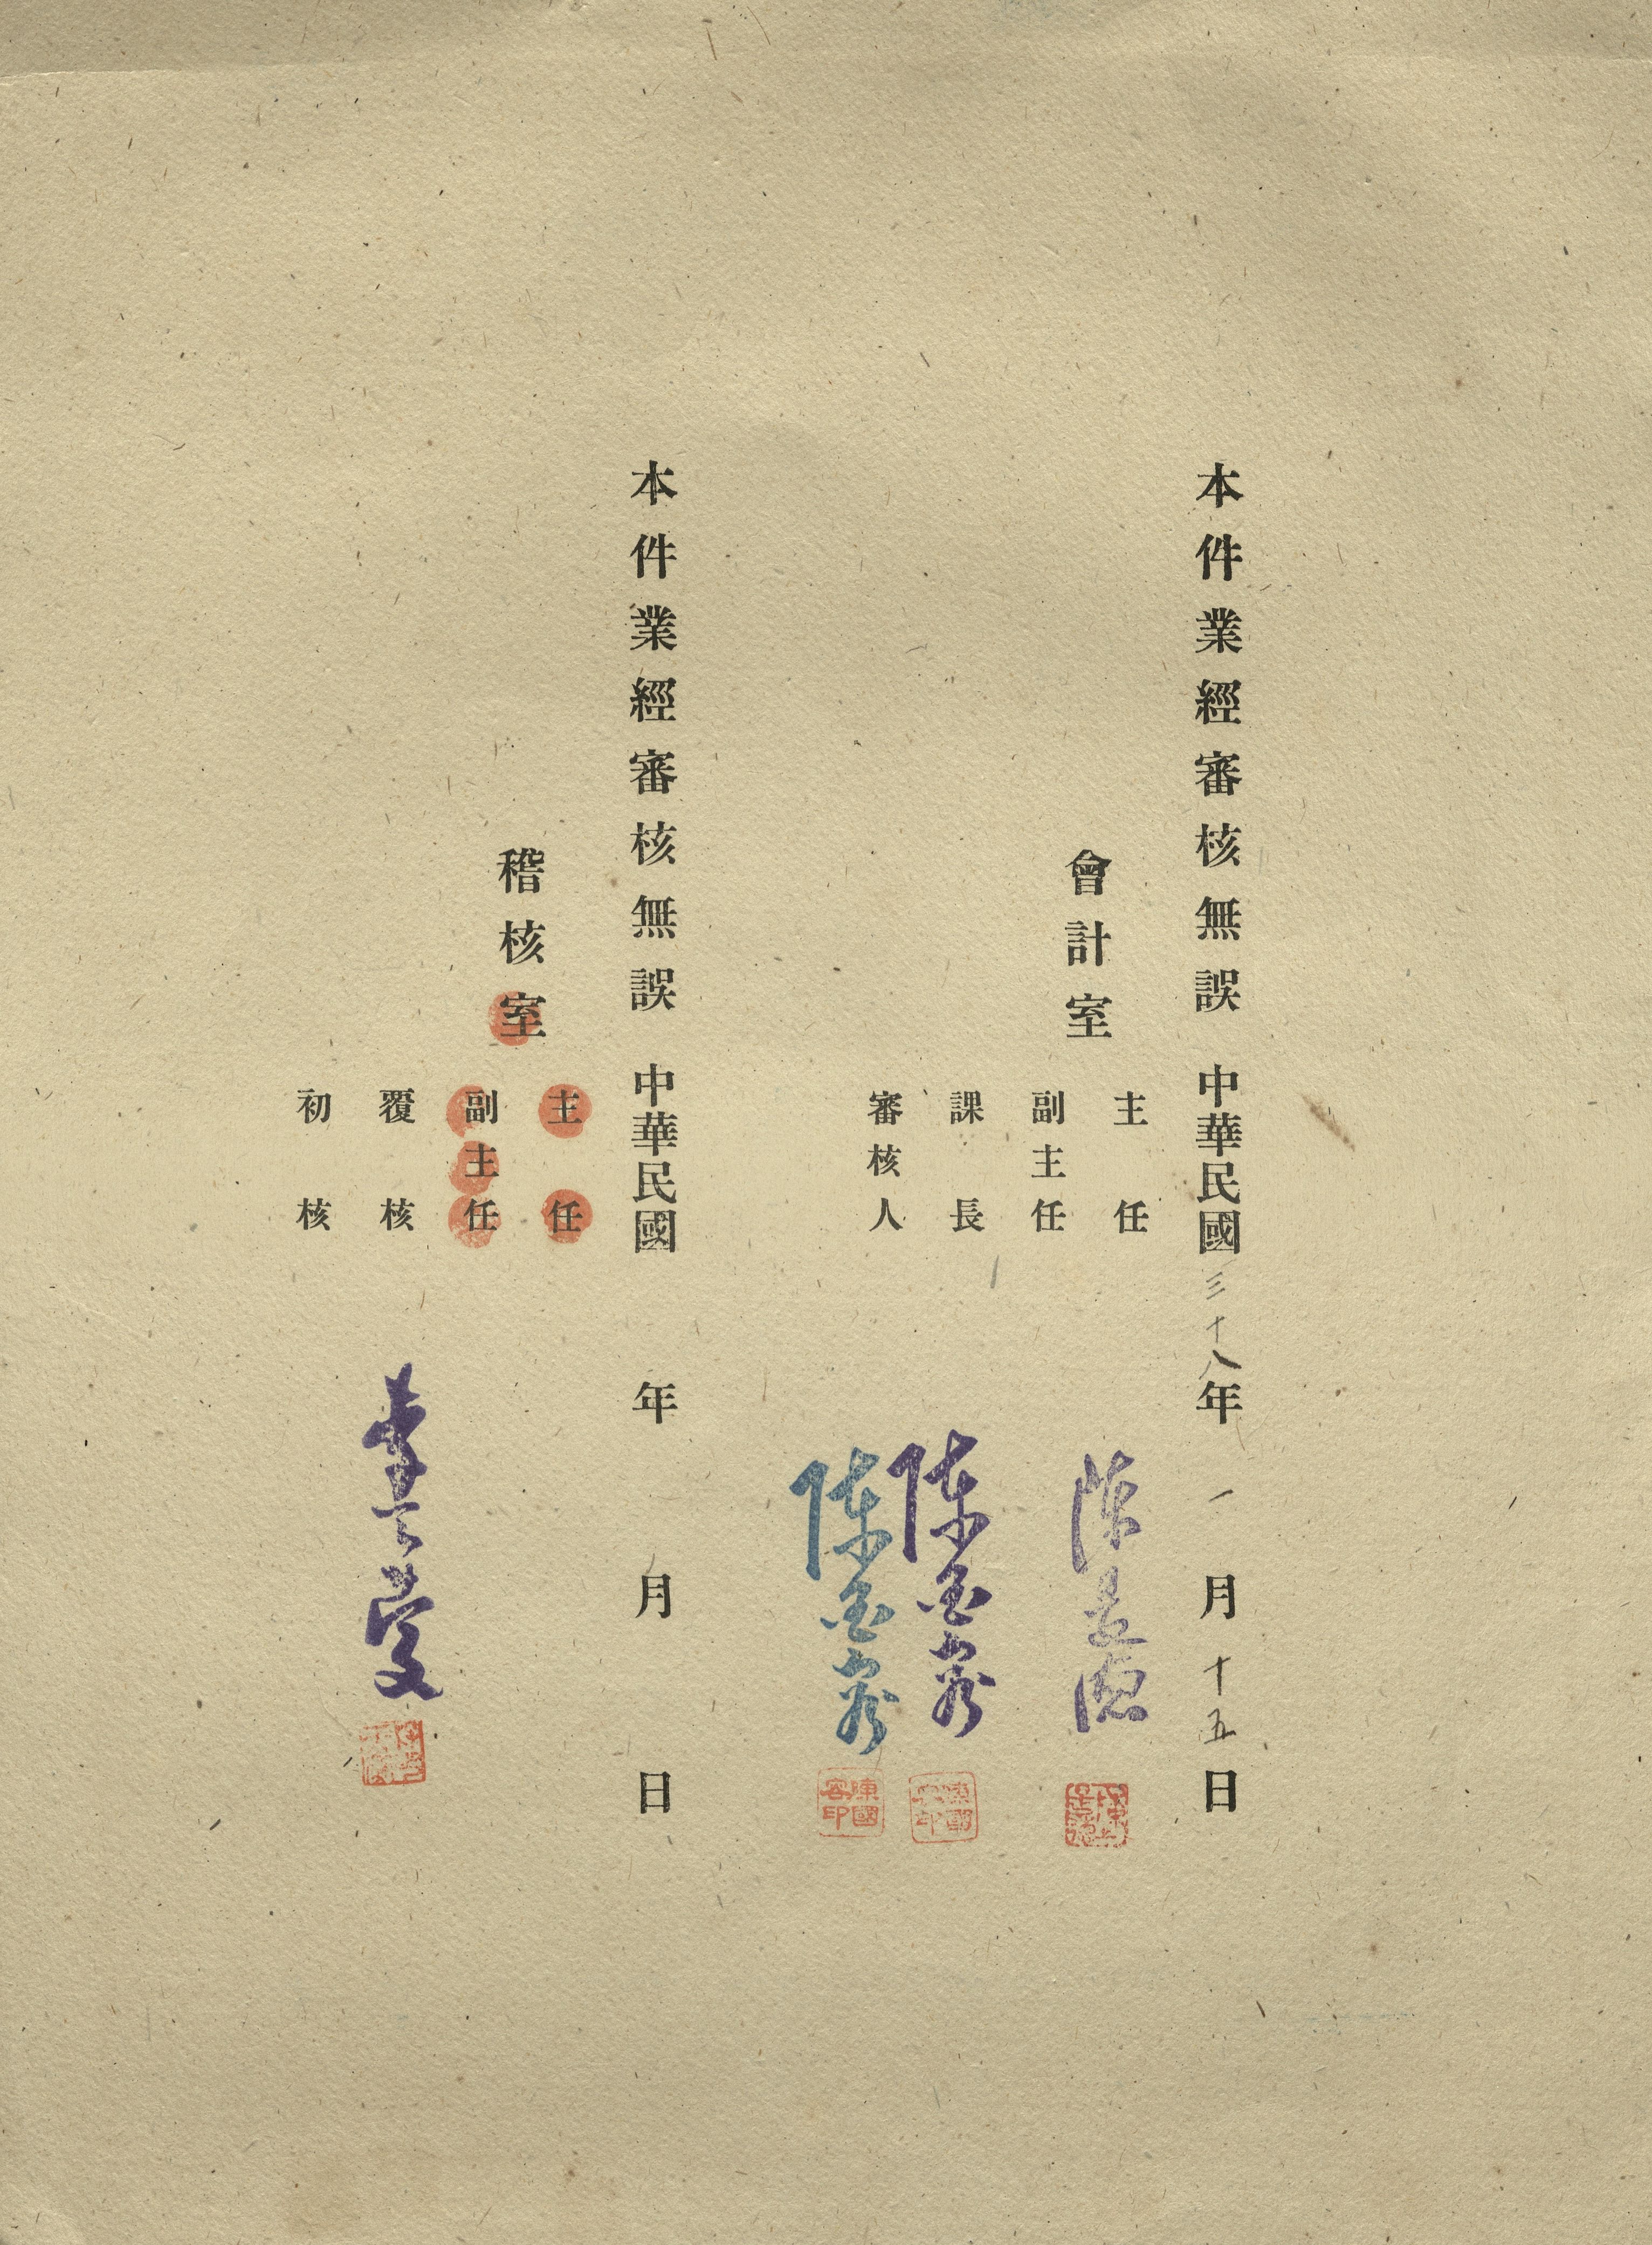 本件業經審核無誤 中華民國三十八年一月十五日
會計室
主任
副主任
課長
審核人
陳
陳國容
陳國容
陳國容印
陳國容印
本件業經審核無誤 中華民國 年 月 日
稽核室
主任
副主任
覆核
初核
李